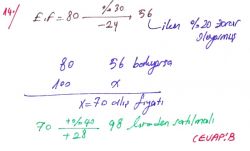 14/ E.F = 80 %30 → -24 56
iken %20 zarar
80 56
100 x
x = 70 alış fiyatı
70 +%40 → +28 98 liradan satılmalı
CEVAP: B